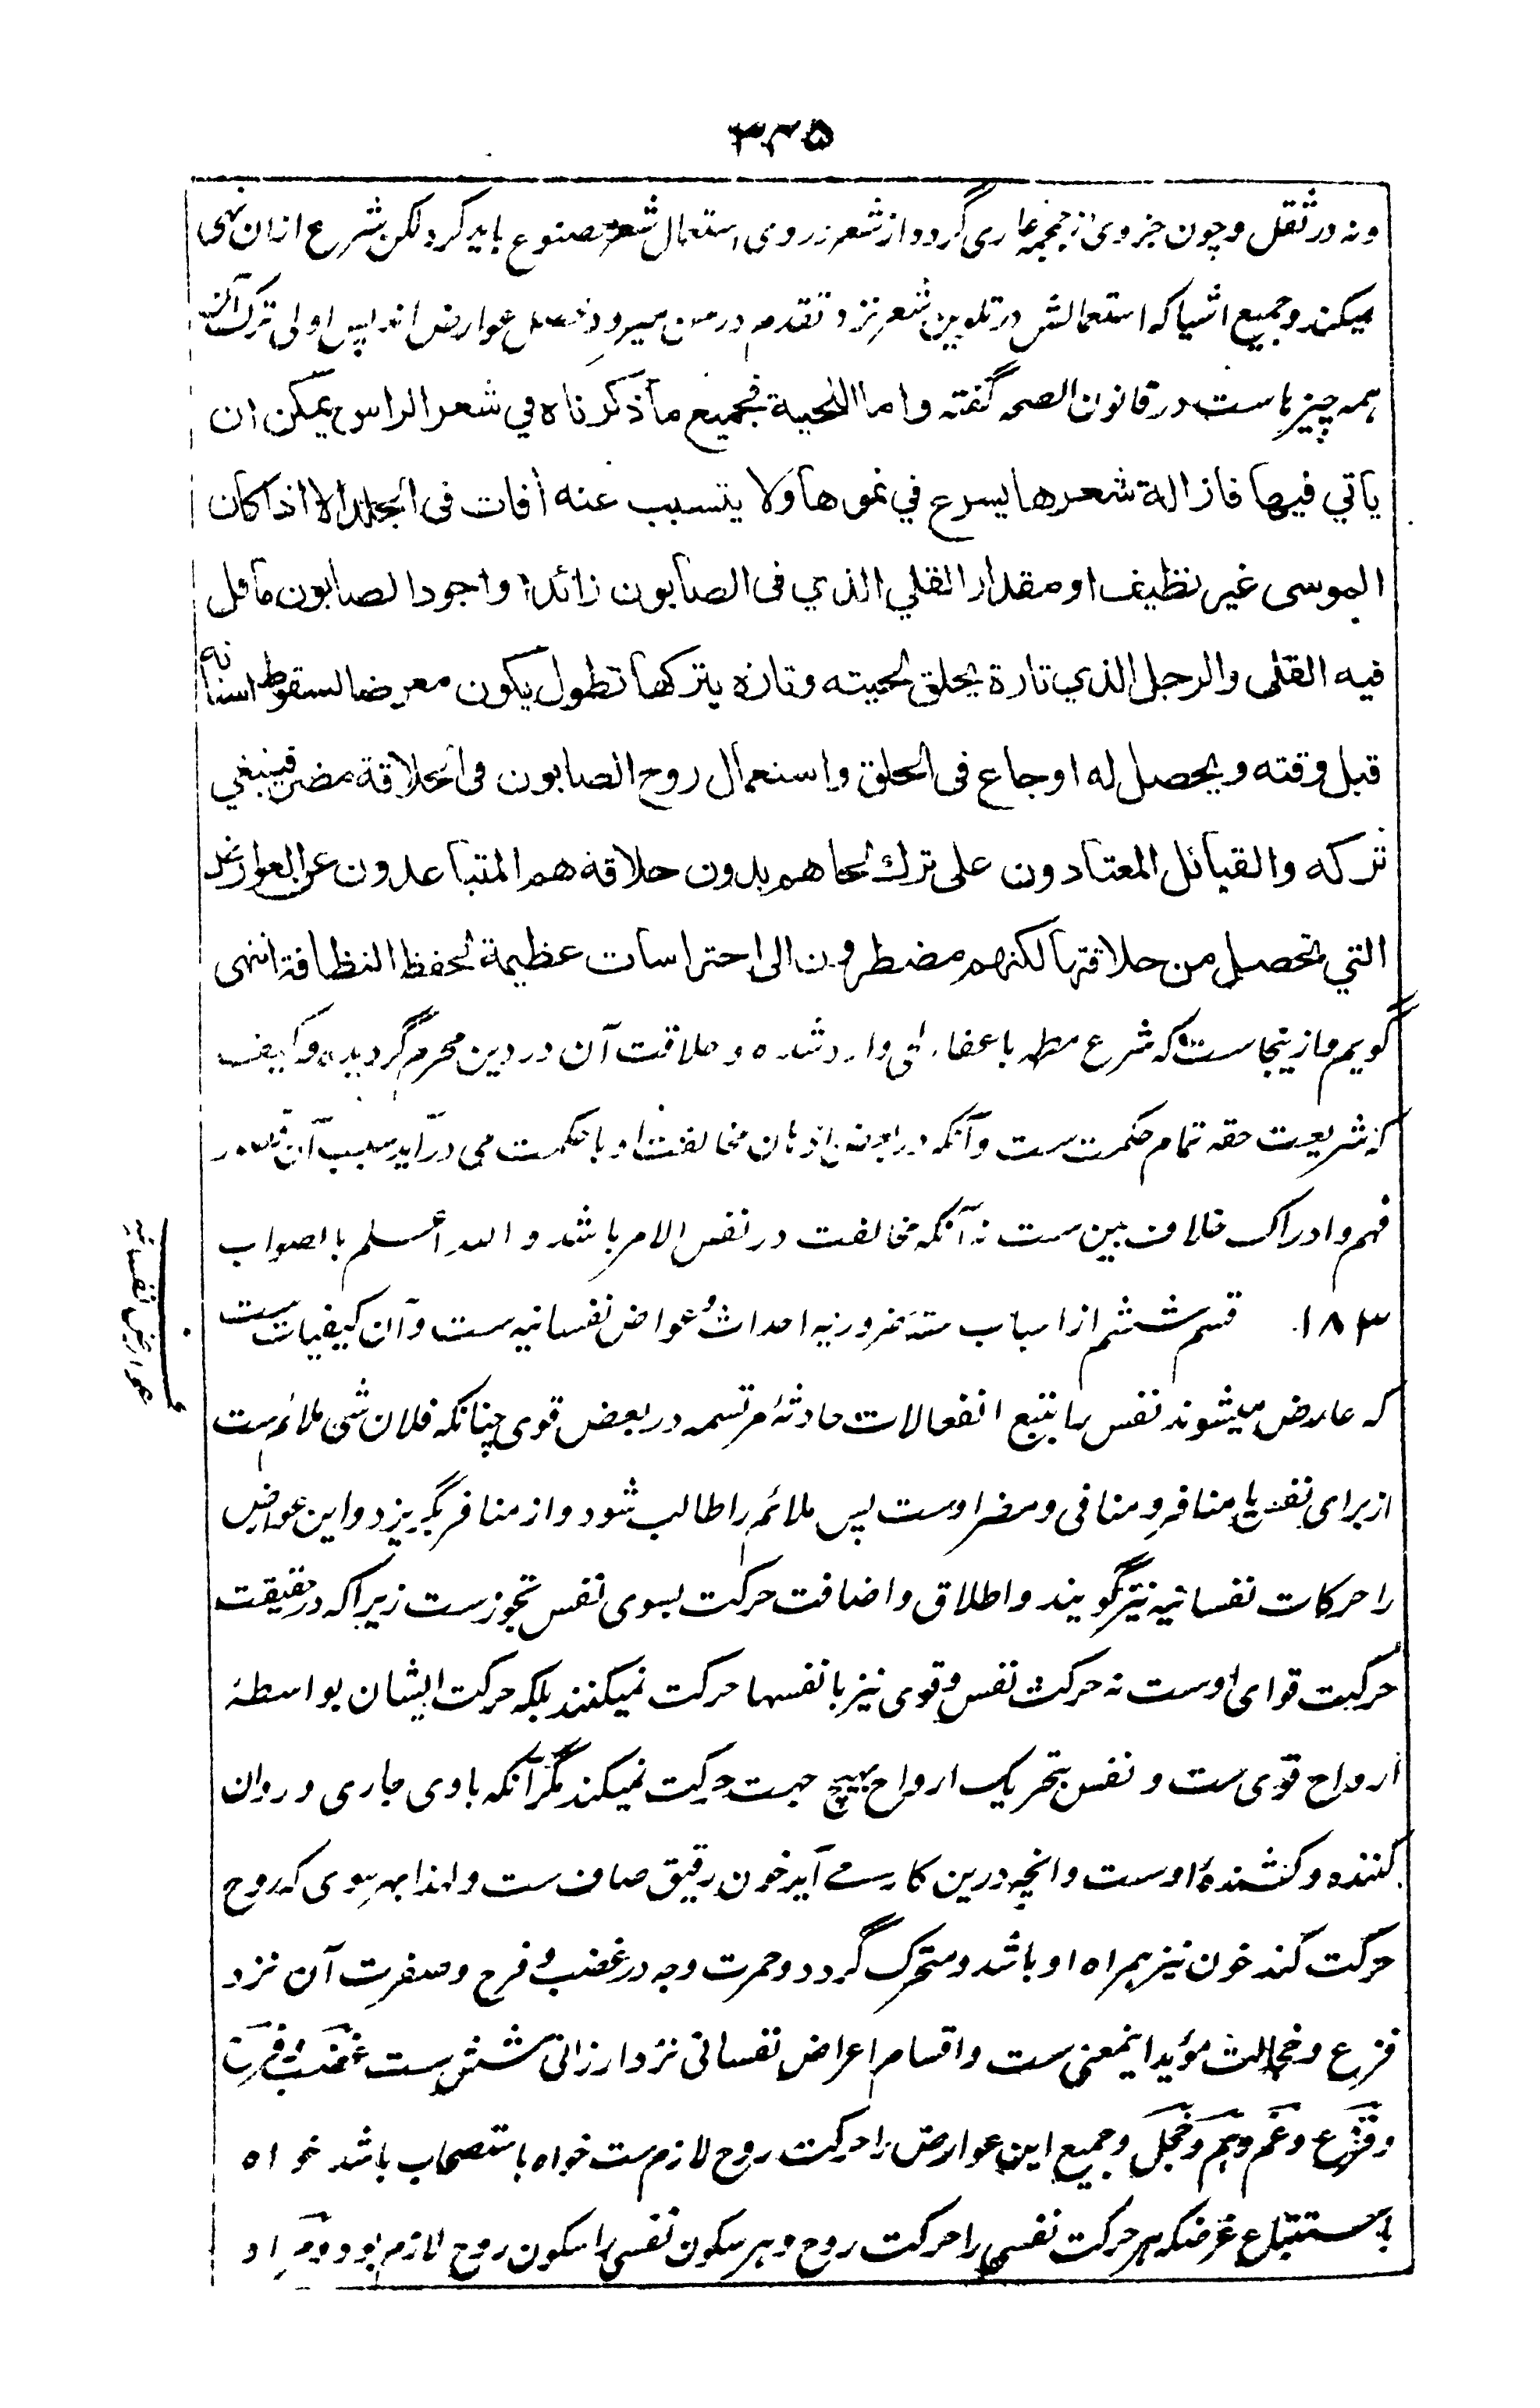 ۳۴۵
ونه در ثقل وچون جزوی از جمجمه عاری گردد از شعر زروی استعمال شعر مصنوع باید کرد لکن شرع ازان نهی
میکند وجمیع اشیا که استعمالش در تلوین شعر نزد تقدم در سن میرود عوارض اند پس اولی ترک آن
همه چیزهاست در قانون الصحه گفته واما اللحية فجميع ما ذكرناه في شعر الراس يمكن ان
ياتي فيها فازالة شعرها يسرع في نموها ولا يتسبب عنه أفات فى الجلد الا اذا كان
الموسى غير نظيف او مقدار القلي الذي فى الصابون زائدا واجود الصابون ما قل
فيه القلى والرجل الذي تارة يحلق لحيته وتارة يتركها تطول يكون معرضا لسقوط اسنانه
قبل وقته ويحصل له اوجاع فى الحلق واستعمال روح الصابون فى الحلاقة مضر فينبغي
تركه والقبائل المعتادون على ترك لحاهم بدون حلاقة هم المتباعدون عن العوارض
التي تحصل من حلاقتها لكنهم مضطرون الى احتراسات عظيمة لحفظ النظافة انتهى
گویم وازینجاست که شرع مطهر باعفاء لحی وارد شده و حلاقت آن در دین محرم گردیده وکیف
که شریعت حقه تمام حکمت ست وآنکه در اذهان مخالفت او باحکمت می درآید سبب آن
فهم وادراک خلاف بین ست نه آنکه مخالفت در نفس الامر باشد و الله أعلم بالصواب
۱۸۳ قسم ششم از اسباب سته ضروریه احداث وعوارض نفسانیه ست وآن کیفیات ست
عوارض نفسانیه
که عارض میشوند نفس را بتبع انفعالات حادثهٔ مرتسمه در بعض قوی چنانکه فلان شی ملائم ست
از برای نفس یا منافر و منافی ومضر اوست پس ملائم را طالب شود واز منافر بگریزد واین عوارض
را حرکات نفسانیه نیز گویند واطلاق واضافت حرکت بسوی نفس تجوزست زیراکه در حقیقت
حرکت قوای اوست نه حرکت نفس وقوی نیز بانفسها حرکت نمیکنند بلکه حرکت ایشان بواسطهٔ
ارواح قوی ست ونفس بتحریک ارواح بهیچ جهت حرکت نمیکند مگر آنکه باوی جاری وروان
کننده وکشندهٔ اوست وانچه درین کار می آید خون رقیق صاف ست ولهذا بهر سوی که روح
حرکت کند خون نیز همراه او باشد ومتحرک گردد وحمرت وجه در غضب و فرح وصفرت آن نزد
فزع وخجالت مؤید اینمعنی ست واقسام اعراض نفسانی نزد ارزانی شش ست غضب و فرحت
وفزع وغم وهم وخجل وجمیع این عوارض را حرکت روح لازم ست خواه باستصحاب باشد خواه
باستتباع غرضکه هر حرکت نفس را حرکت روح وهر سکون نفس را سکون روح لازم بود ومراد